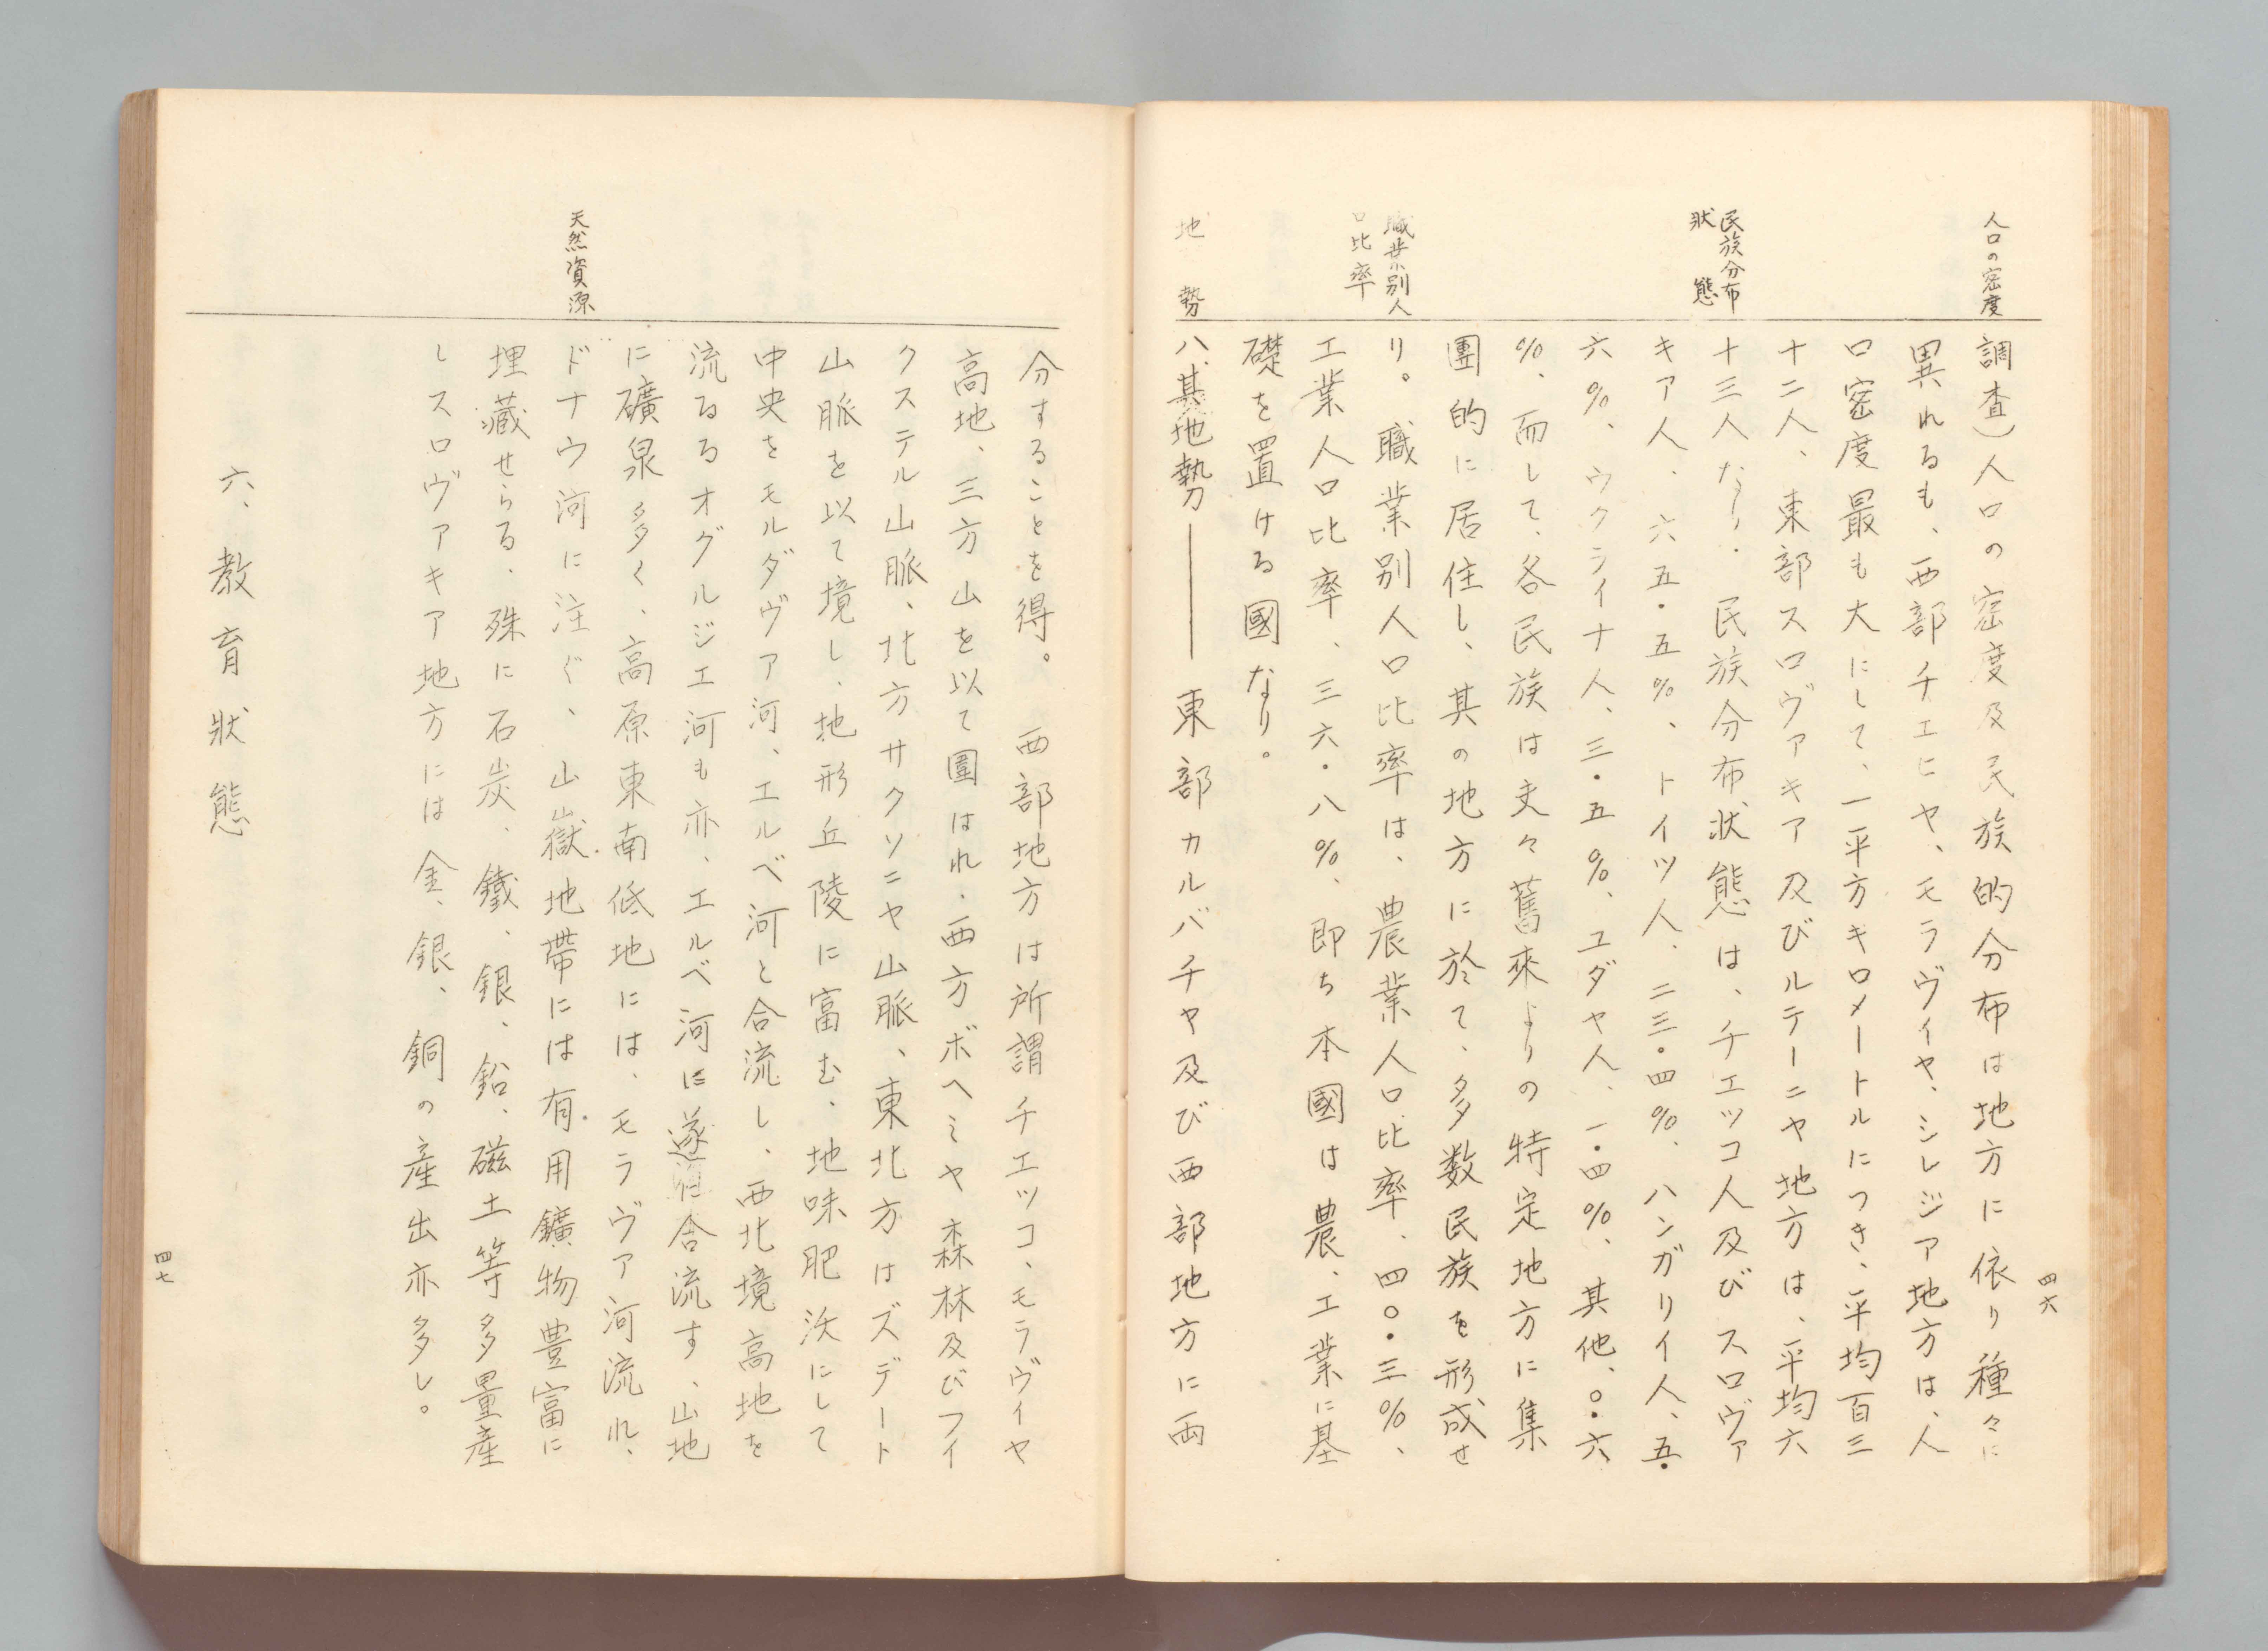 四六
人口の密度
調査)人口の密度及民族的分布は地方に依り種々に
異れるも、西部チエヒヤ、モラヴィヤ、シレジア地方は、人
口密度最も大にして、一平方キロメートルにつき、平均百三
十二人、東部スロヴァキア及びルテーニヤ地方は、平均六
民族分布
狀態
十三人なり。民族分布狀態は、チエッコ人及びスロヴァ
キア人、六五・五%、トイツ人、二三・四%、ハンガリイ人、五・
六%、ウクライナ人、三・五%、ユダヤ人、一・四%、其他、〇・六
%、而して、各民族は夫々舊來よりの特定地方に集
團的に居住し、其の地方に於て、多数民族を形成せ
職業別人
口比率
り。職業別人口比率は、農業人口比率、四〇・三%、
工業人口比率、三六・八%、即ち本國は農、工業に基
礎を置ける國なり。
地勢
八、其地勢――東部カルバチヤ及び西部地方に両
分することを得。西部地方は所謂チエッコ、モラヴィヤ
高地、三方山を以て圍はれ、西方ボヘミヤ森林及びフイ
クステル山脈、北方サクソニヤ山脈、東北方はズデート
山脈を以て境し、地形丘陵に富む、地味肥沃にして
中央をモルダヴア河、エルベ河と合流し、西北境高地を
流るるオグルジエ河も亦、エルベ河に遂合流す、山地
天然資源
に礦泉多く、高原東南低地には、モラヴア河流れ、
ドナウ河に注ぐ、山嶽地帶には有用鑛物豊富に
埋藏せらる、殊に石炭、鐵、銀、鉛、磁土等多量産
しスロヴァキア地方には金、銀、銅の産出亦多し。
六、教育狀態
四七